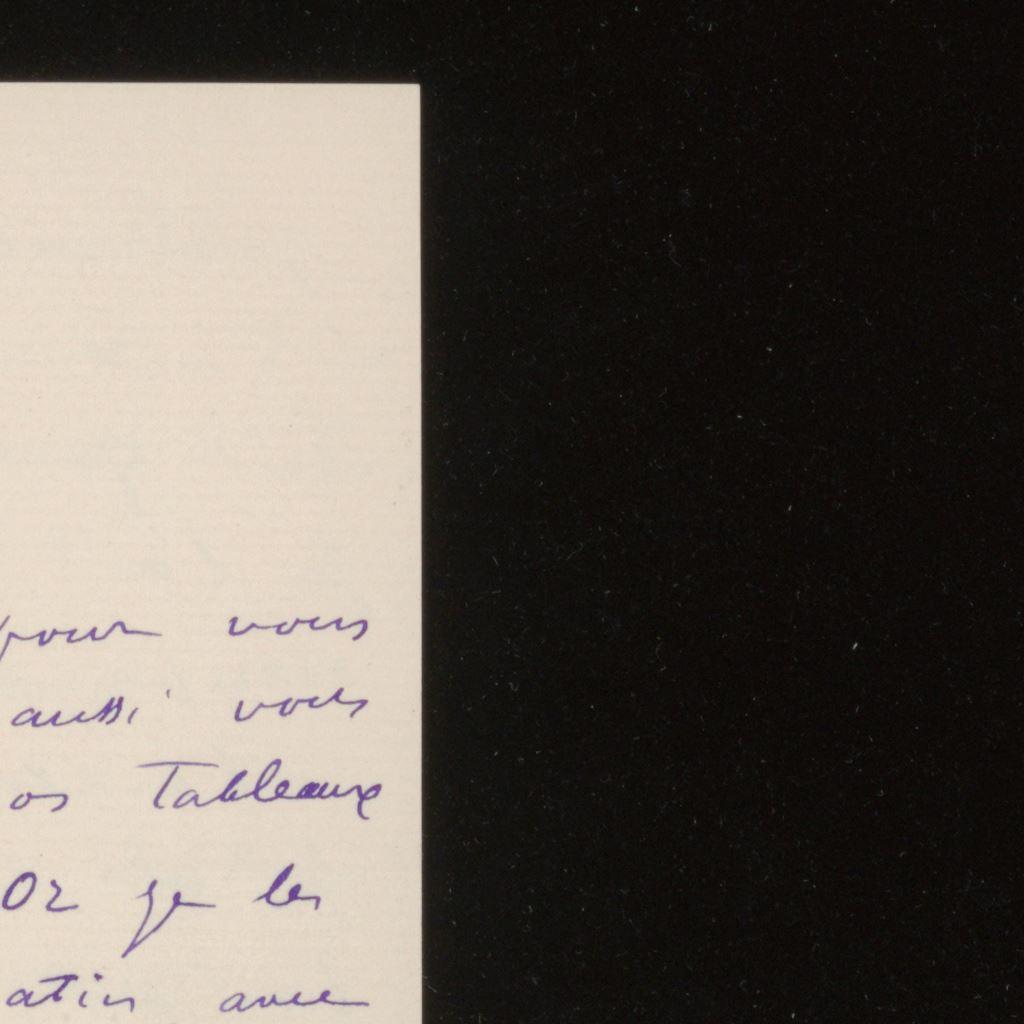 pour vous
aussi vous
os Tableaux
02 je les
atin avec